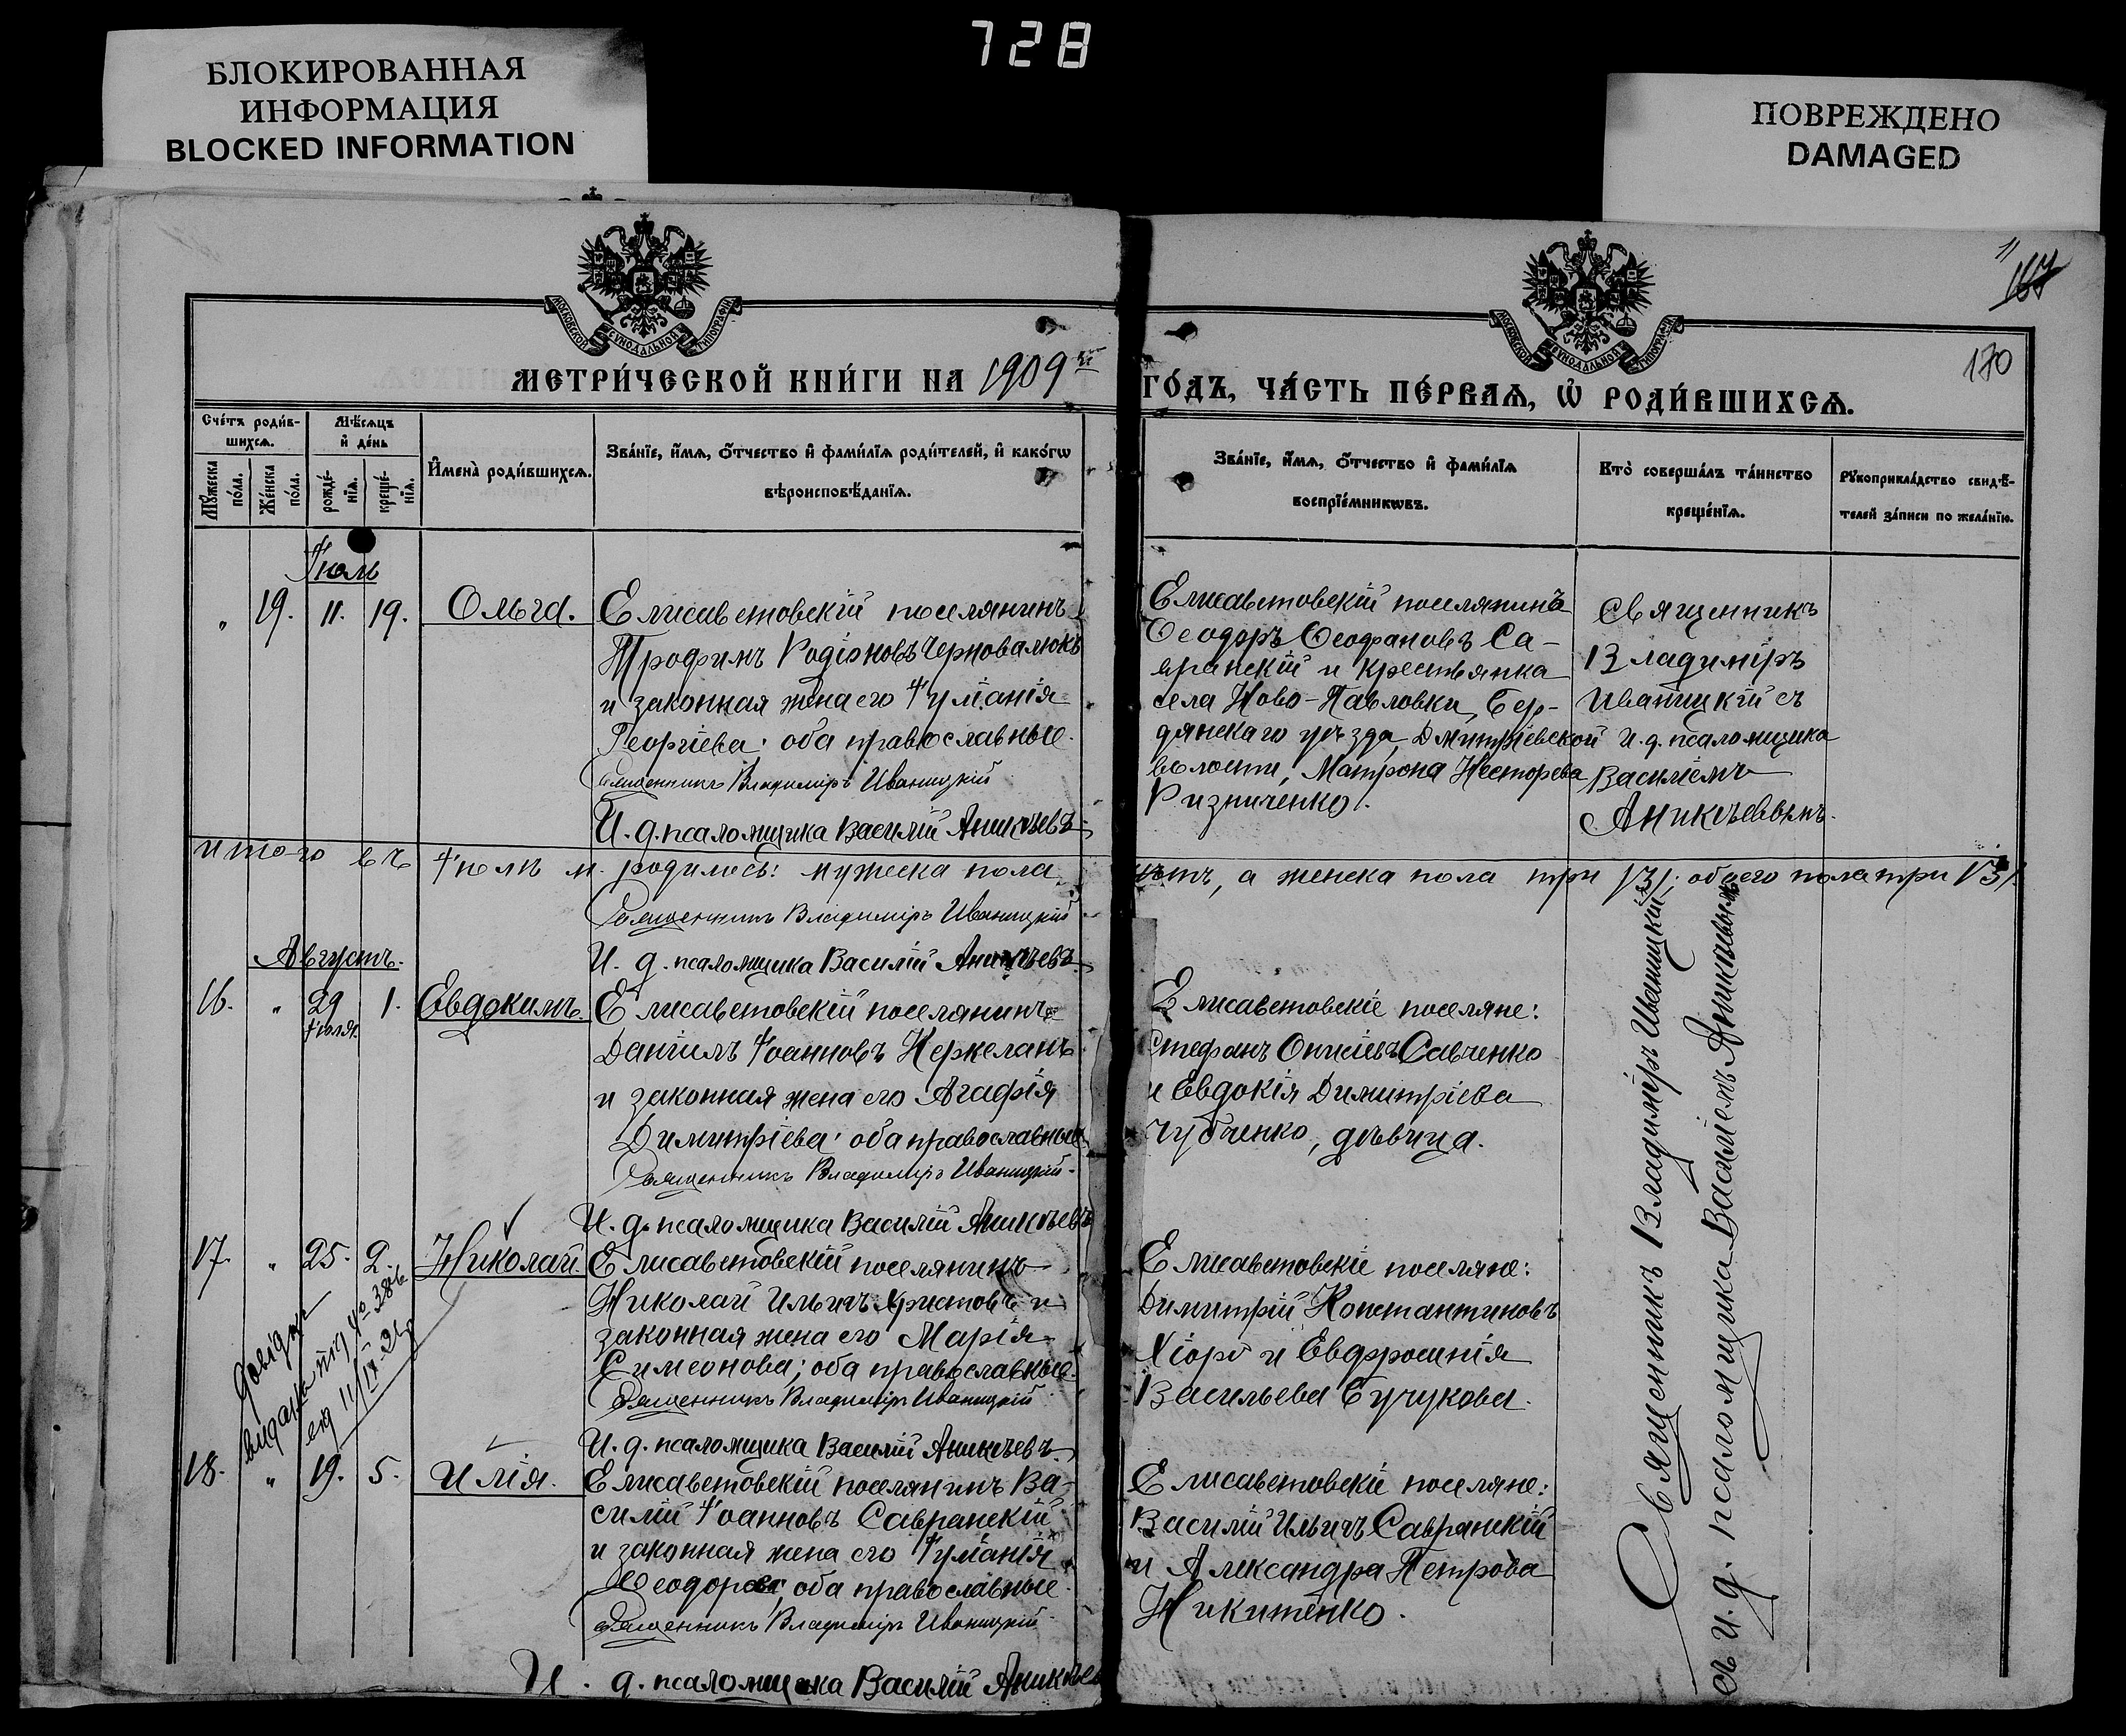 728
БЛОКИРОВАННАЯ
ИНФОРМАЦИЯ
BLOCKED INFORMATION
ПОВРЕЖДЕНО
DAMAGED
МОСКОВСКОЙ СѴНОДАЛЬНОЙ ТИПОГРАФІИ
МОСКОВСКОЙ СѴНОДАЛЬНОЙ ТИПОГРАФІИ
170
МЕТРИ́ЧЕСКОЙ КНИ́ГИ НА 1909й
ГО́ДЪ, ЧА́СТЬ ПЕ́РВАѦ, Ѡ РОДИ́ВШИХСѦ.
Сче́тъ роди́в-
шихсѧ.
Мꙋ́жеска
по́ла.
Же́нска
по́ла.
Мѣ́сѧцъ
и҆ де́нь
рожде́-
нїѧ.
креще́-
нїѧ.
И҆мена̀ роди́вшихсѧ.
Зва́нїе, и҆́мѧ, ѻ҆́тчество и҆ фами́лїѧ роди́телей, и҆ како́гѡ
вѣроисповѣ́данїѧ.
Зва́нїе, и҆́мѧ, ѻ҆́тчество и҆ фами́лїѧ
воспрїе́мникѡвъ.
Кто̀ соверша́лъ та́инство
креще́нїѧ.
Рꙋкоприкла́дство свидѣ́-
телей за́писи по жела́нїю.
Іюль
" 19. 11. 19. Ольга.
Елисаветовскій поселянинъ
Трофимъ Родіоновъ Черновалюкъ
и законная жена его Іуліанія
Георгіева; оба православные.
Священникъ Владиміръ Иваницкій
И. д. псаломщика Василій Аникѣевъ
Елисаветовскій поселянинъ
Ѳеодоръ Ѳеофановъ Са-
вранскій и крестьянка
села Ново-Павловки, Бер-
дянскаго уѣзда, Дмитріевской
волости, Матрона Несторева
Ризниченко.
Священникъ
Владиміръ
Иваницкій съ
и. д. псаломщика
Василіемъ
Аникѣевымъ.
Итого въ Іюлѣ м. родилось: мужеска пола
нѣтъ, а женска пола три /3/; обоего пола три /3/.
Священникъ Владиміръ Иваницкій
И. д. псаломщика Василій Аникѣевъ
Августъ.
16. " 29 Іюля. 1. Евдокимъ.
Елисаветовскій поселянинъ
Даніилъ Іоанновъ Черкеланъ
и законная жена его Агафія
Димитріева; оба православные
Священникъ Владиміръ Иваницкій
И. д. псаломщика Василій Аникѣевъ
Елисаветовскіе поселяне:
Стефанъ Онисіевъ Савченко
и Евдокія Димитріева
Чубченко, дѣвица.
17. " 25. 2. Николай.
Елисаветовскій поселянинъ
Николай Ильичъ Христовъ и
законная жена его Марія
Симеонова; оба православные.
Священникъ Владиміръ Иваницкій
И. д. псаломщика Василій Аникѣевъ
Елисаветовскіе поселяне:
Димитрій Константиновъ
Хіоро и Евфросинія
Васильева Бучукова.
довідку
видана під
18. " 19. 5. Илія.
Елисаветовскій поселянинъ Ва-
силій Іоанновъ Савранскій
и законная жена его Іуліанія
Ѳеодорова; оба православные.
Священникъ Владиміръ Иваницкій
И. д. псаломщика Василій Аникѣевъ
Елисаветовскіе поселяне:
Василій Ильичъ Савранскій
и Александра Петрова
Никитенко.
Священникъ Владиміръ Иваницкій
съ и. д. псаломщика Василіемъ Аникѣевымъ